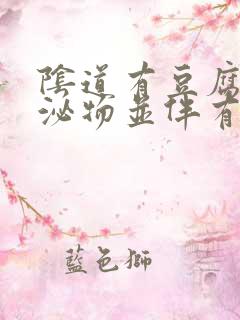 陰道有豆腐
泌物並伴有
藍色獅